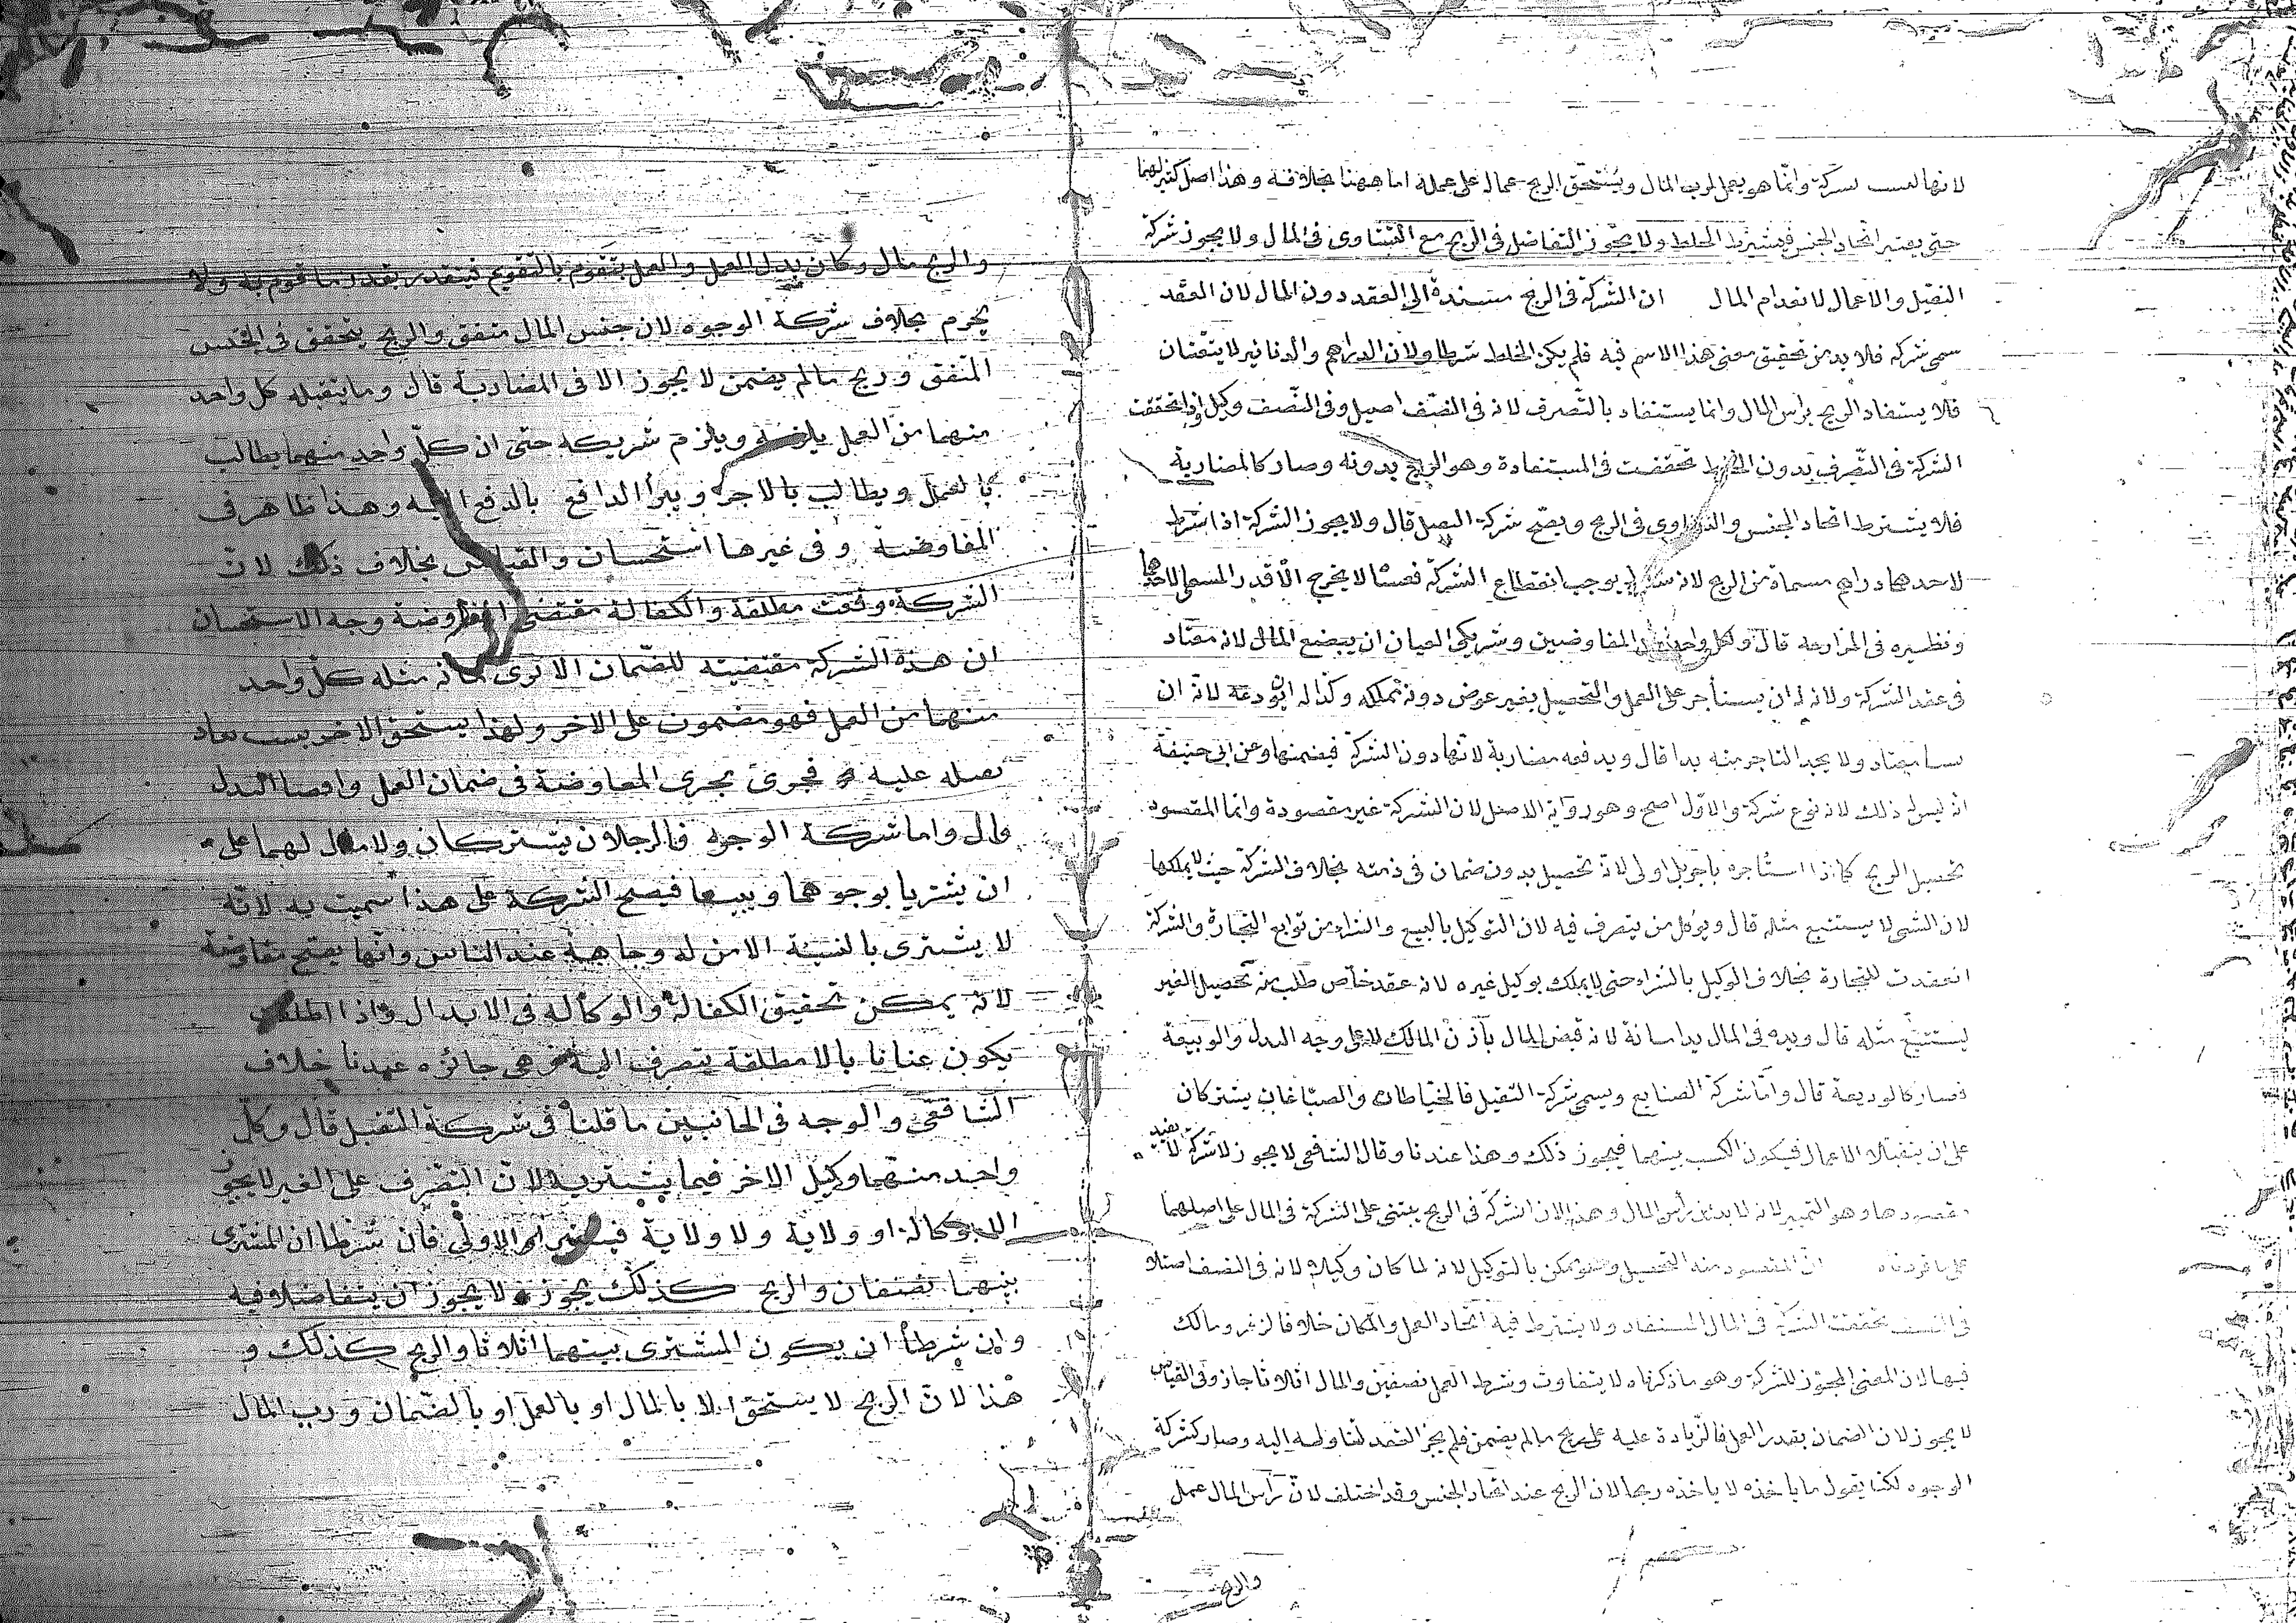 لانها ليست بشركة وانما هو يعمل لرب المال ويستحق الربح عماله على عمله اما ههنا بخلافه وهذا اصل كبير لهما
حتى يعتبر اتحاد الجنس فيشترط الخلط ولا يجوز التفاضل فى الربح مع التساوى فى المال ولا يجوز شركة
التقبل والاعمال لانعدام المال ان الشركة فى الربح مسندة الى العقد دون المال لان العقد
سمى شركه فلا بد من تحقيق معنى هذا الاسم فيه فلم يكن الخلط شرطا ولان الدراهم والدنانير لا يتعينان
فلا يستفاد الربح براس المال وانما يستفاد بالتصرف لانه فى النصف اصيل وفى النصف وكيل واذا تحققت
الشركة فى التصرف بدون الخلط تحققت فى المستفادة وهو الربح بدونه وصار كالمضاربة
فلا يشترط اتحاد الجنس والتساوى فى الربح ويصح شركة التقبل قال ولا يجوز الشركة اذا شرط
لاحدهما دراهم مسماة من الربح لانه شرط يوجب انقطاع الشركة فعسا لا يخرج الا قدر المسمى لاحدهما
ونظيره فى المزارعه قال ولكل واحد من المفاوضين وشريكى العيان ان يبضع المال لانه معتاد
فى عقد الشركة ولانه له ان يستأجر على العمل والتحصيل بغير عوض دونه فيملكه وكذا له ان يودعه لانه ان
معتاد ولا يجد التاجر منه بدا قال ويدفعه مضاربة لانها دون الشركة فيضمنها وعن ابى حنيفة
انه ليس له ذلك لانه نوع شركة والاول اصح وهو رواية الاصل لان الشركة غير مقصودة وانما المقصود
تحصيل الربح كما اذا استأجره باجر بل اولى لانه تحصيل بدون ضمان فى ذمته بخلاف الشركة حيث لا يملكها
لان الشى لا يستتبع مثله قال ويوكل من يتصرف فيه لان التوكيل بالبيع والشراء من توابع التجارة والشركة
انعقدت للتجارة بخلاف الوكيل بالشراء حتى لا يملك توكيل غيره لانه عقد خاص طلب منه تحصيل الغير
ليستتبع مثله قال ويده فى المال يد امانة لانه قبض المال باذن المالك لا على وجه البدل والوثيقة
فصار كالوديعة قال واما شركة الصنايع ويسمى شركة التقبل فالخياطان والصباغان يشتركان
على ان يتقبلا الاعمال فيكون الكسب بينهما فيجوز ذلك وهذا عندنا وقال الشافعى لا يجوز لا شركة لا تفيد
مقصودها وهو التثمير لانه لا بد من رأس المال وهذا لان الشركة فى الربح يبتنى على الشركة فى المال على اصلهما
على ما قررناه ان المقصود منه التحصيل وهو ممكن بالتوكيل لانه لما كان وكيلا لانه فى النصف اصيلا
فى النصف تحققت الشركة فى المال المستفاد ولا يشترط فيه اتحاد العمل والمكان خلافا لزفر ومالك
فيها لان المعنى المجوز للشركة وهو ما ذكرناه لا يتفاوت وشرط العمل نصفين والمال اثلاثا جاز وفى القياس
لا يجوز لان الضمان بقدر العمل فالزيادة عليه على ربح ما لم يضمن فلم يجز العقد لتاويله اليه وصار كشركة
الوجوه لكنا يقول ما يأخذه لا يأخذه ربحا لان الربح عند اتحاد الجنس وقد اختلف لان رأس المال عمل
والربح
والربح مال وكان بدل العمل والعمل يتقوم بالتقويم فيتقدر بقدر ما قوم به ولا
يحرم بخلاف شركة الوجوه لان جنس المال متفق والربح يتحقق فى الجنس
المتفق وربح ما لم يضمن لا يجوز الا فى المضاربة قال وما يتقبله كل واحد
منهما من العمل يلزمه ويلزم شريكه حتى ان كل واحد منهما يطالب
بالعمل ويطالب بالاجر ويبرأ الدافع بالدفع اليه وهذا ظاهر فى
المفاوضة وفى غيرها استحسان والقياس بخلاف ذلك لان
الشركة وقعت مطلقة والكفالة مقتضى المفاوضة وجه الاستحسان
ان هذه الشركة مقتضيته للضمان الا ترى مثله كل واحد
منهما من العمل فهو مضمون على الاخر ولهذا يستحق الاخر بسبب نفاد
تقبله عليه فجرى مجرى المفاوضة فى ضمان العمل واقتضا البدل
قال واما شركة الوجوه فالرجلان يشتركان ولا مال لهما على
ان يشتريا بوجوههما ويبيعا فيصح الشركة على هذا سميت به لانه
لا يشترى بالنسيئة الا من له وجاهة عند الناس وانها يصح مفاوضة
لانه يمكن تحقيق الكفالة والوكالة فى الابدال واذا اطلقت
يكون عنانا بالا مطلقة يتصرف اليه وهى جائزه عندنا خلاف
الشافعى والوجه فى الجانبين ما قلنا فى شركة التقبل قال وكل
واحد منهما وكيل الاخر فيما يشتريه لان التصرف على الغير لا يجوز
الا بوكالة او ولاية ولا ولاية فيتعين الاولى فان شرطا ان المشترى
بينهما نصفان والربح كذلك يجوز ولا يجوز ان يتفاضلا فيه
وان شرطا ان يكون المشترى بينهما اثلاثا والربح كذلك و
هذا لان الربح لا يستحق الا بالمال او بالعمل او بالضمان ورب المال